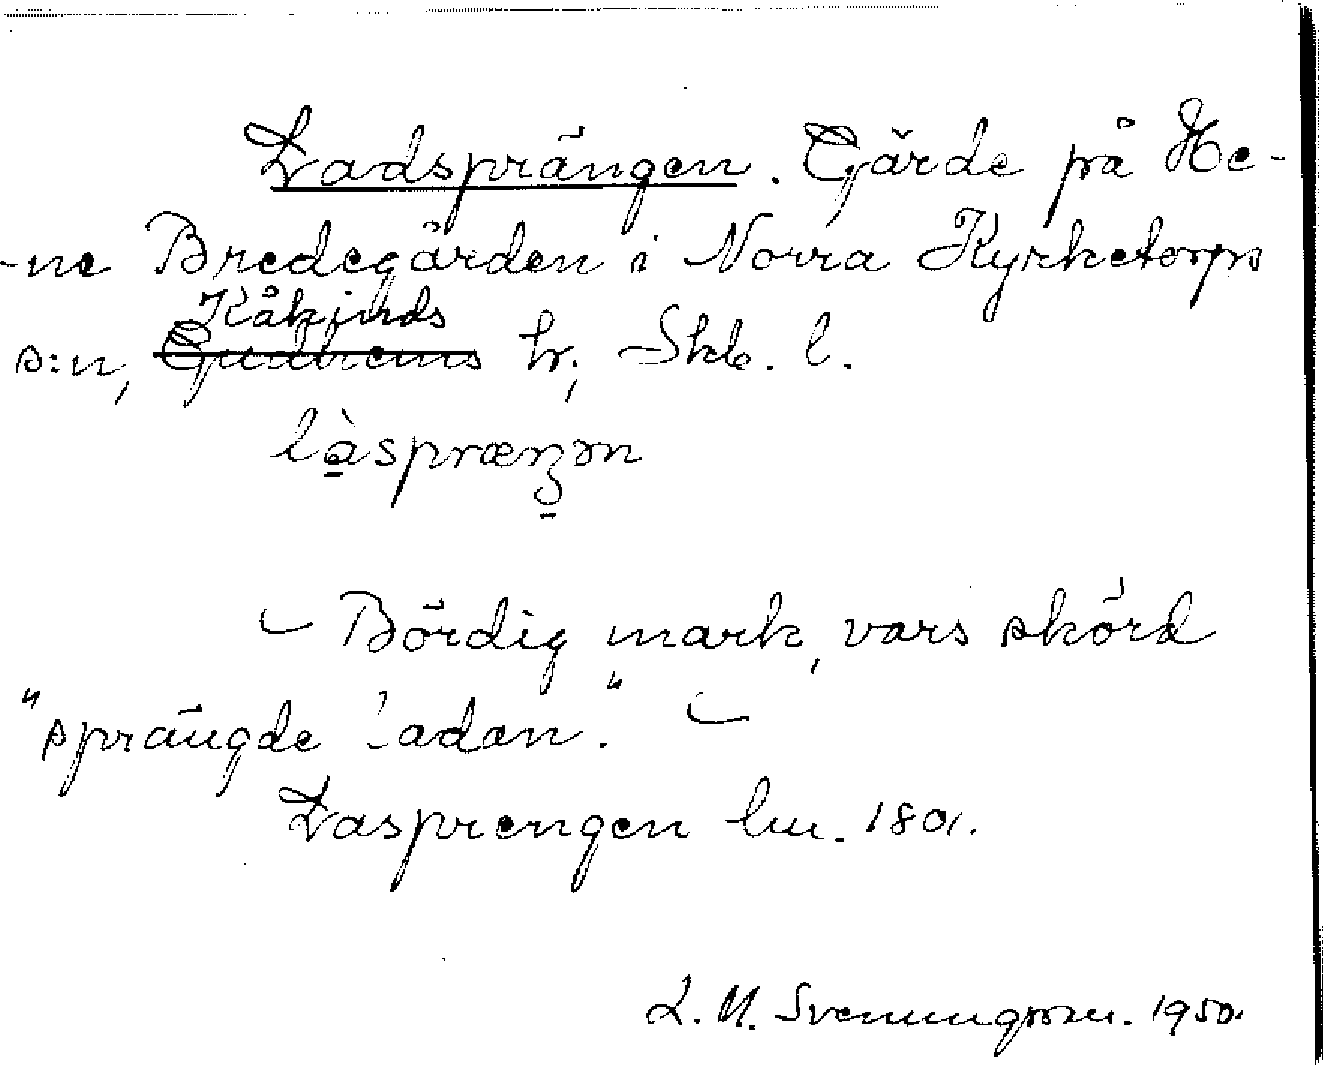 Ladsprängen. Gärde på He-
-ne Bredegården i Norra Kyrketorps
Kåkinds
s:n, Gudhems hr, Skb. l.
làspræŋən
– Bördig mark, vars skörd
"sprängde ladan." –
Lasprengen lm. 1801.
L. M. Svenungsson. 1950.